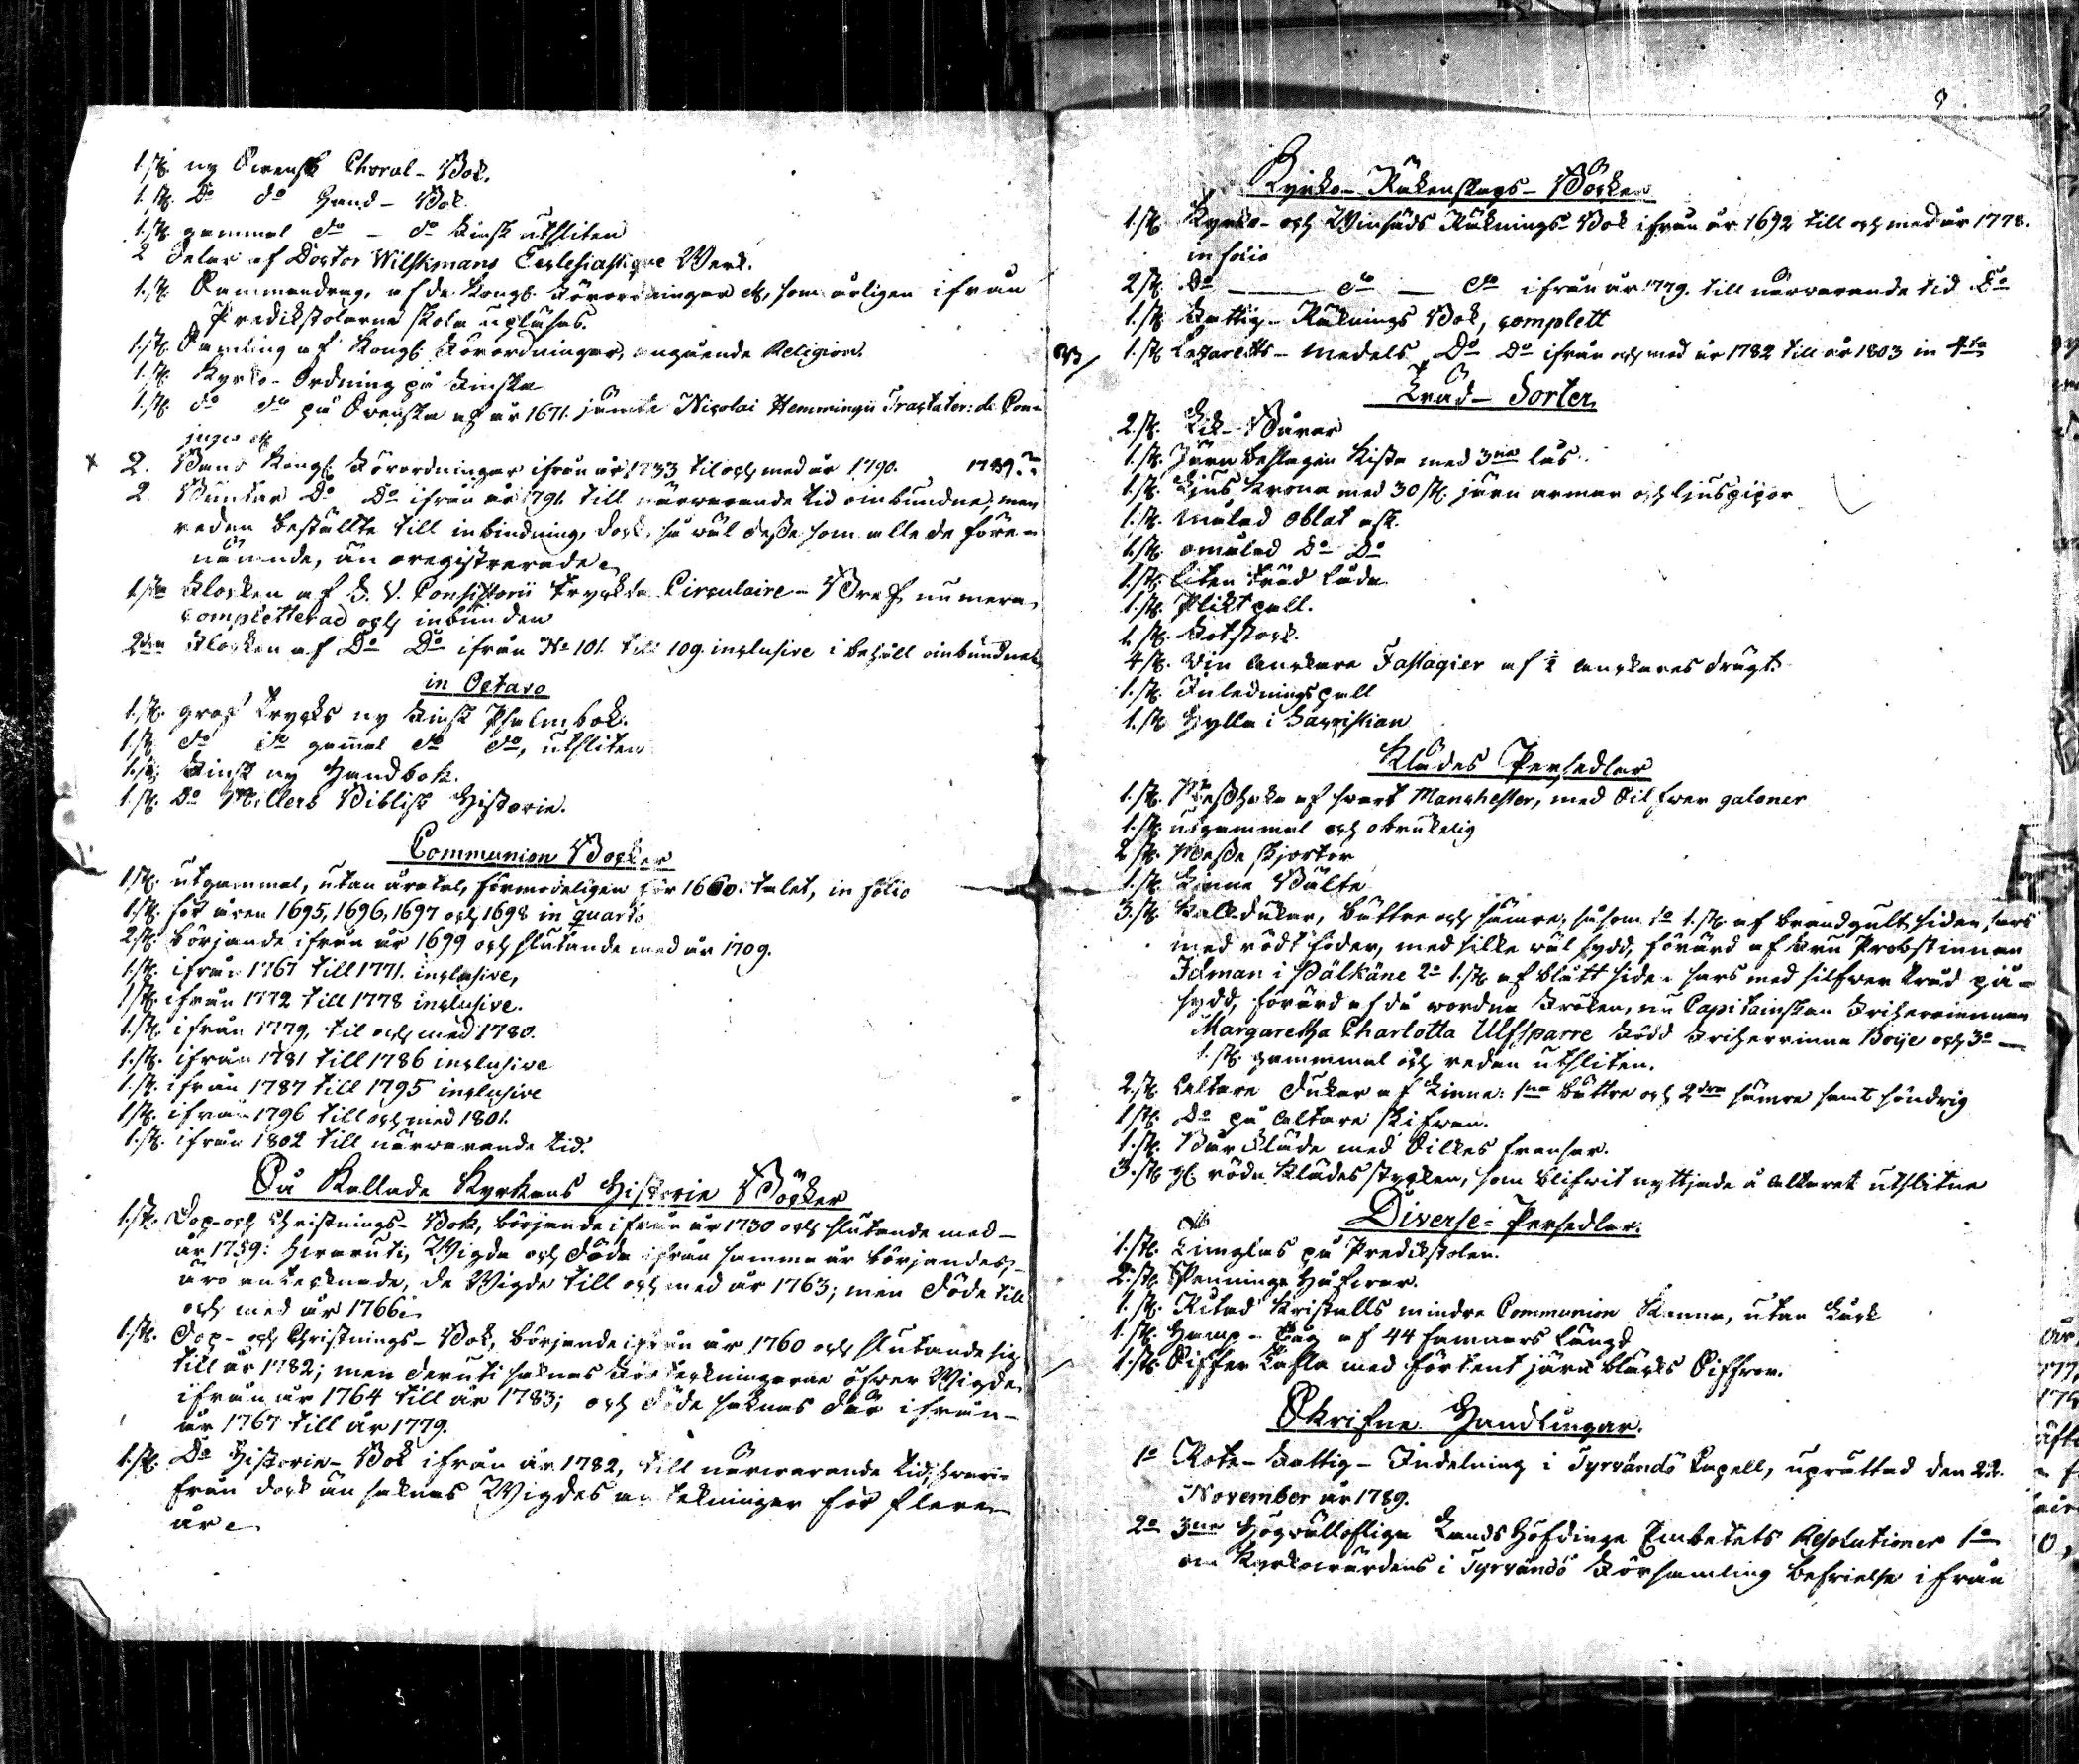 1.st. ny Svensk Choral-Bok.
1.st. Do do Hand-Bok
1.st. gammal do - do Finsk utsliten
2 delar af Doctor Wilskmans Ecclesiastique Werk.
1.st. Sammandrag, af de Kongl. Förordningar etc, som årligen ifrån
Predikstolarne skola upläsas.
1.st. Samling af Kongl. Förordningar, angående Religion.
1.st. Kyrko-Ordning på Finska
1.st. do do på Svenska af år 1671. jämte Nicolai Hemmingii Tractater: de Con-
jugio etc
2. Band Kongl. Förordningar ifrån år 1733 til och med år 1790. 1789
2 Buntar Do Do ifrån år 1791. till närwarande tid oinbundne, men
redan beställte till inbindning, dock, så wäl desse som alle de före-
nämnde, än oregistrerade.
1sta Flocken af D. V. Consistorii tryckta Circulaire-Bref numera
completterad och inbunden
2dra Flocken af Do Do ifrån No 101. till 109. inclusive i behåll oinbundne
in Octavo
1.st. grof trycks ny Finsk Psalmbok.
1.st. do do gamal do do, utsliten
1.st. Finsk ny Handbok.
1.st. Do Millers Biblisk Historie.
Communion Böcker
1.st. utgammal, utan åratal, förmodeligen för 1660. talet, in folio
1.st. för åren 1695, 1696, 1697 och 1698 in quarto
2.st. börjande ifrån år 1699 och slutande med år 1709.
1.st. ifrån 1767 till 1771. inclusive,
1.st. ifrån 1772 till 1778 inclusive.
1.st. ifrån 1779, til och med 1780.
1.st. ifrån 1781 till 1786 inclusive
1.st. ifrån 1787 till 1795 inclusive
1.st. ifrån 1796 till och med 1801.
1.st. ifrån 1802 till närwarande tid.
Så Kallade Kyrkans Historie Böcker
1.st. Dop- och Christnings-Bok, börjande ifrån år 1730 och slutande med
år 1759: hwaruti, Wigda och döda ifrån samma år börjandes,
äro antecknade, de Wigde till och med år 1763; men döde till
och med år 1766.
1.st. Dop- och Christnings-Bok, börjande ifrån år 1760 och slutande sig
till år 1782; men deruti saknas Förteckningarne öfwer Wigde
ifrån år 1764 till år 1783; och döde saknas där ifrån
år 1767 till år 1779.
1.st. Do Historie-Bok ifrån år 1782, till närwarande tid, hwari-
från dock än saknas Wigdes antekningar för flere
år.
Kyrko-Räkenskaps-Böcker
1.st. Kyrko- och Winsäds Räknings-Bok ifrån år 1692 till och med år 1778.
in folio
2.st. Do do do ifrån år 1779. till närwarande tid Do
1.st. Fattig-Räknings Bok, complett
1.st. Lazaretts-medels Do Do ifrån och med år 1782 till år 1803 in 4to
Träd-Sorter
2.st. Lik-Bårar
1.st. Järn beslagen Kista med 3ne lås.
1.st. Ljus Krona med 30 st. järn armar och ljuspipor
1.st. målad oblat ask.
1.st. omålad Do Do
1.st. liten träd låda
1.st. Pliktpall.
1.st. Fotstock.
4.st. Vin anckare Fastagier af 1/2 anckares drägt.
1.st. Inledningspall
1.st. Hylla i Sacristian
Klädes Persedlar
1.st. Messhake af svart Manchester, med Silfwer galoner
1.st. utgammal och obrukelig
2.st. Messe skjortor
1.st. Linne Bälte
3.st. Kalkdukar, bättre och sämre, såsom 1o 1.st. af brandgult siden sars
med rödt foder, med silke wäl sydd, förärd af Fru Probstinnan
Idman i Pälkäne 2o 1.st. af blått siden sars med silfwer tråd på-
sydd, förärd af då wordne Fröken, nu Capitainskan Friherrinnan
Margaretha Charlotta Ulfsparre född Friherrinna Boije och 3o
1.st. gammal och redan utsliten.
2.st. Altare dukar af Linne: 1na bättre och 2dra sämre samt söndrig
1.st. Do på altare skifwan.
1.st. Bår Kläde med Silkes fransar.
3.st. gl. röda Klädes stycken, som blifwit nyttjade å altaret utslitne
Diverse-Persedlar.
1.st. Timglas på Predikstolen.
2.st. Penninge Håfwar.
1.st. Ritad Kristalls mindre Communion Kanna, utan Lock
1.st. Hamp-Tåg af 44 famnars längd
1.st. Siffer Tafla med förtent järn bläcks Siffror.
Skrifne Handlingar.
1o Rote-Fattig-Indelning i Tyrvändö Capell, uprättad den 22.
November år 1789.
2o 3ne Högvällofliga Lands Höfdinge Embetets Resolutioner 1o
om Kyrkowärdens i Tyrvändö Församling befrielse ifrån